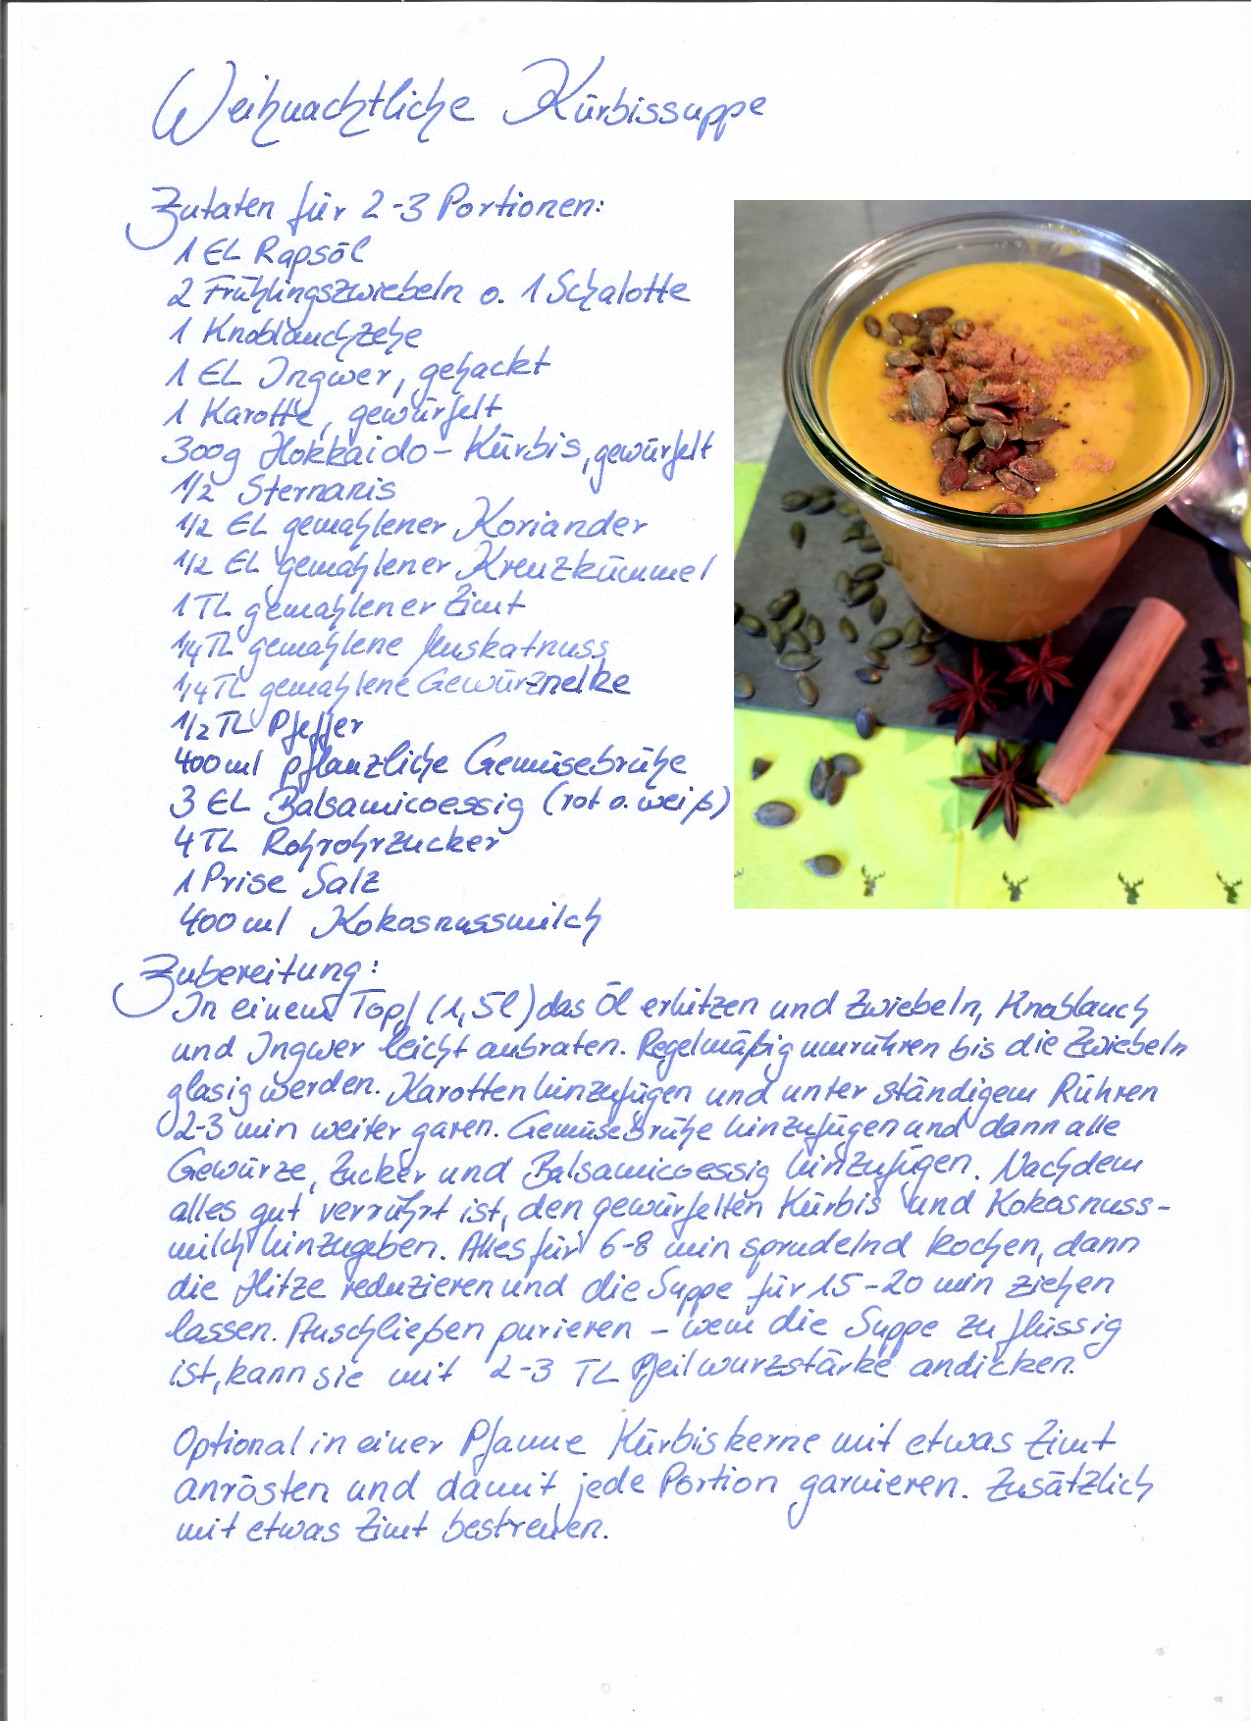 Weihnachtliche Kürbissuppe
Zutaten für 2-3 Portionen:
1 EL Rapsöl
2 Frühlingszwiebeln o. 1 Schalotte
1 Knoblauchzehe
1 EL Ingwer, gehackt
1 Karotte, gewürfelt
300g Hokkaido-Kürbis, gewürfelt
1/2 Sternanis
1/2 EL gemahlener Koriander
1/2 EL gemahlener Kreuzkümmel
1 TL gemahlener Zimt
1/4 TL gemahlene Muskatnuss
1/4 TL gemahlene Gewürznelke
1/2 TL Pfeffer
400 ml pflanzliche Gemüsebrühe
3 EL Balsamicoessig (rot o. weiß)
4 TL Rohrohrzucker
1 Prise Salz
400 ml Kokosnussmilch
Zubereitung:
In einem Topf (1,5l) das Öl erhitzen und Zwiebeln, Knoblauch
und Ingwer leicht anbraten. Regelmäßig umrühren bis die Zwiebeln
glasig werden. Karotten hinzufügen und unter ständigem Rühren
2-3 min weiter garen. Gemüsebrühe hinzufügen und dann alle
Gewürze, Zucker und Balsamicoessig hinzufügen. Nachdem
alles gut verrührt ist, den gewürfelten Kürbis und Kokosnuss-
milch hinzugeben. Alles für 6-8 min sprudelnd kochen, dann
die Hitze reduzieren und die Suppe für 15-20 min ziehen
lassen. Anschließen pürieren - wenn die Suppe zu flüssig
ist, kann sie mit 2-3 TL Pfeilwurzstärke andicken.
Optional in einer Pfanne Kürbiskerne mit etwas Zimt
anrösten und damit jede Portion garnieren. Zusätzlich
mit etwas Zimt bestreuen.